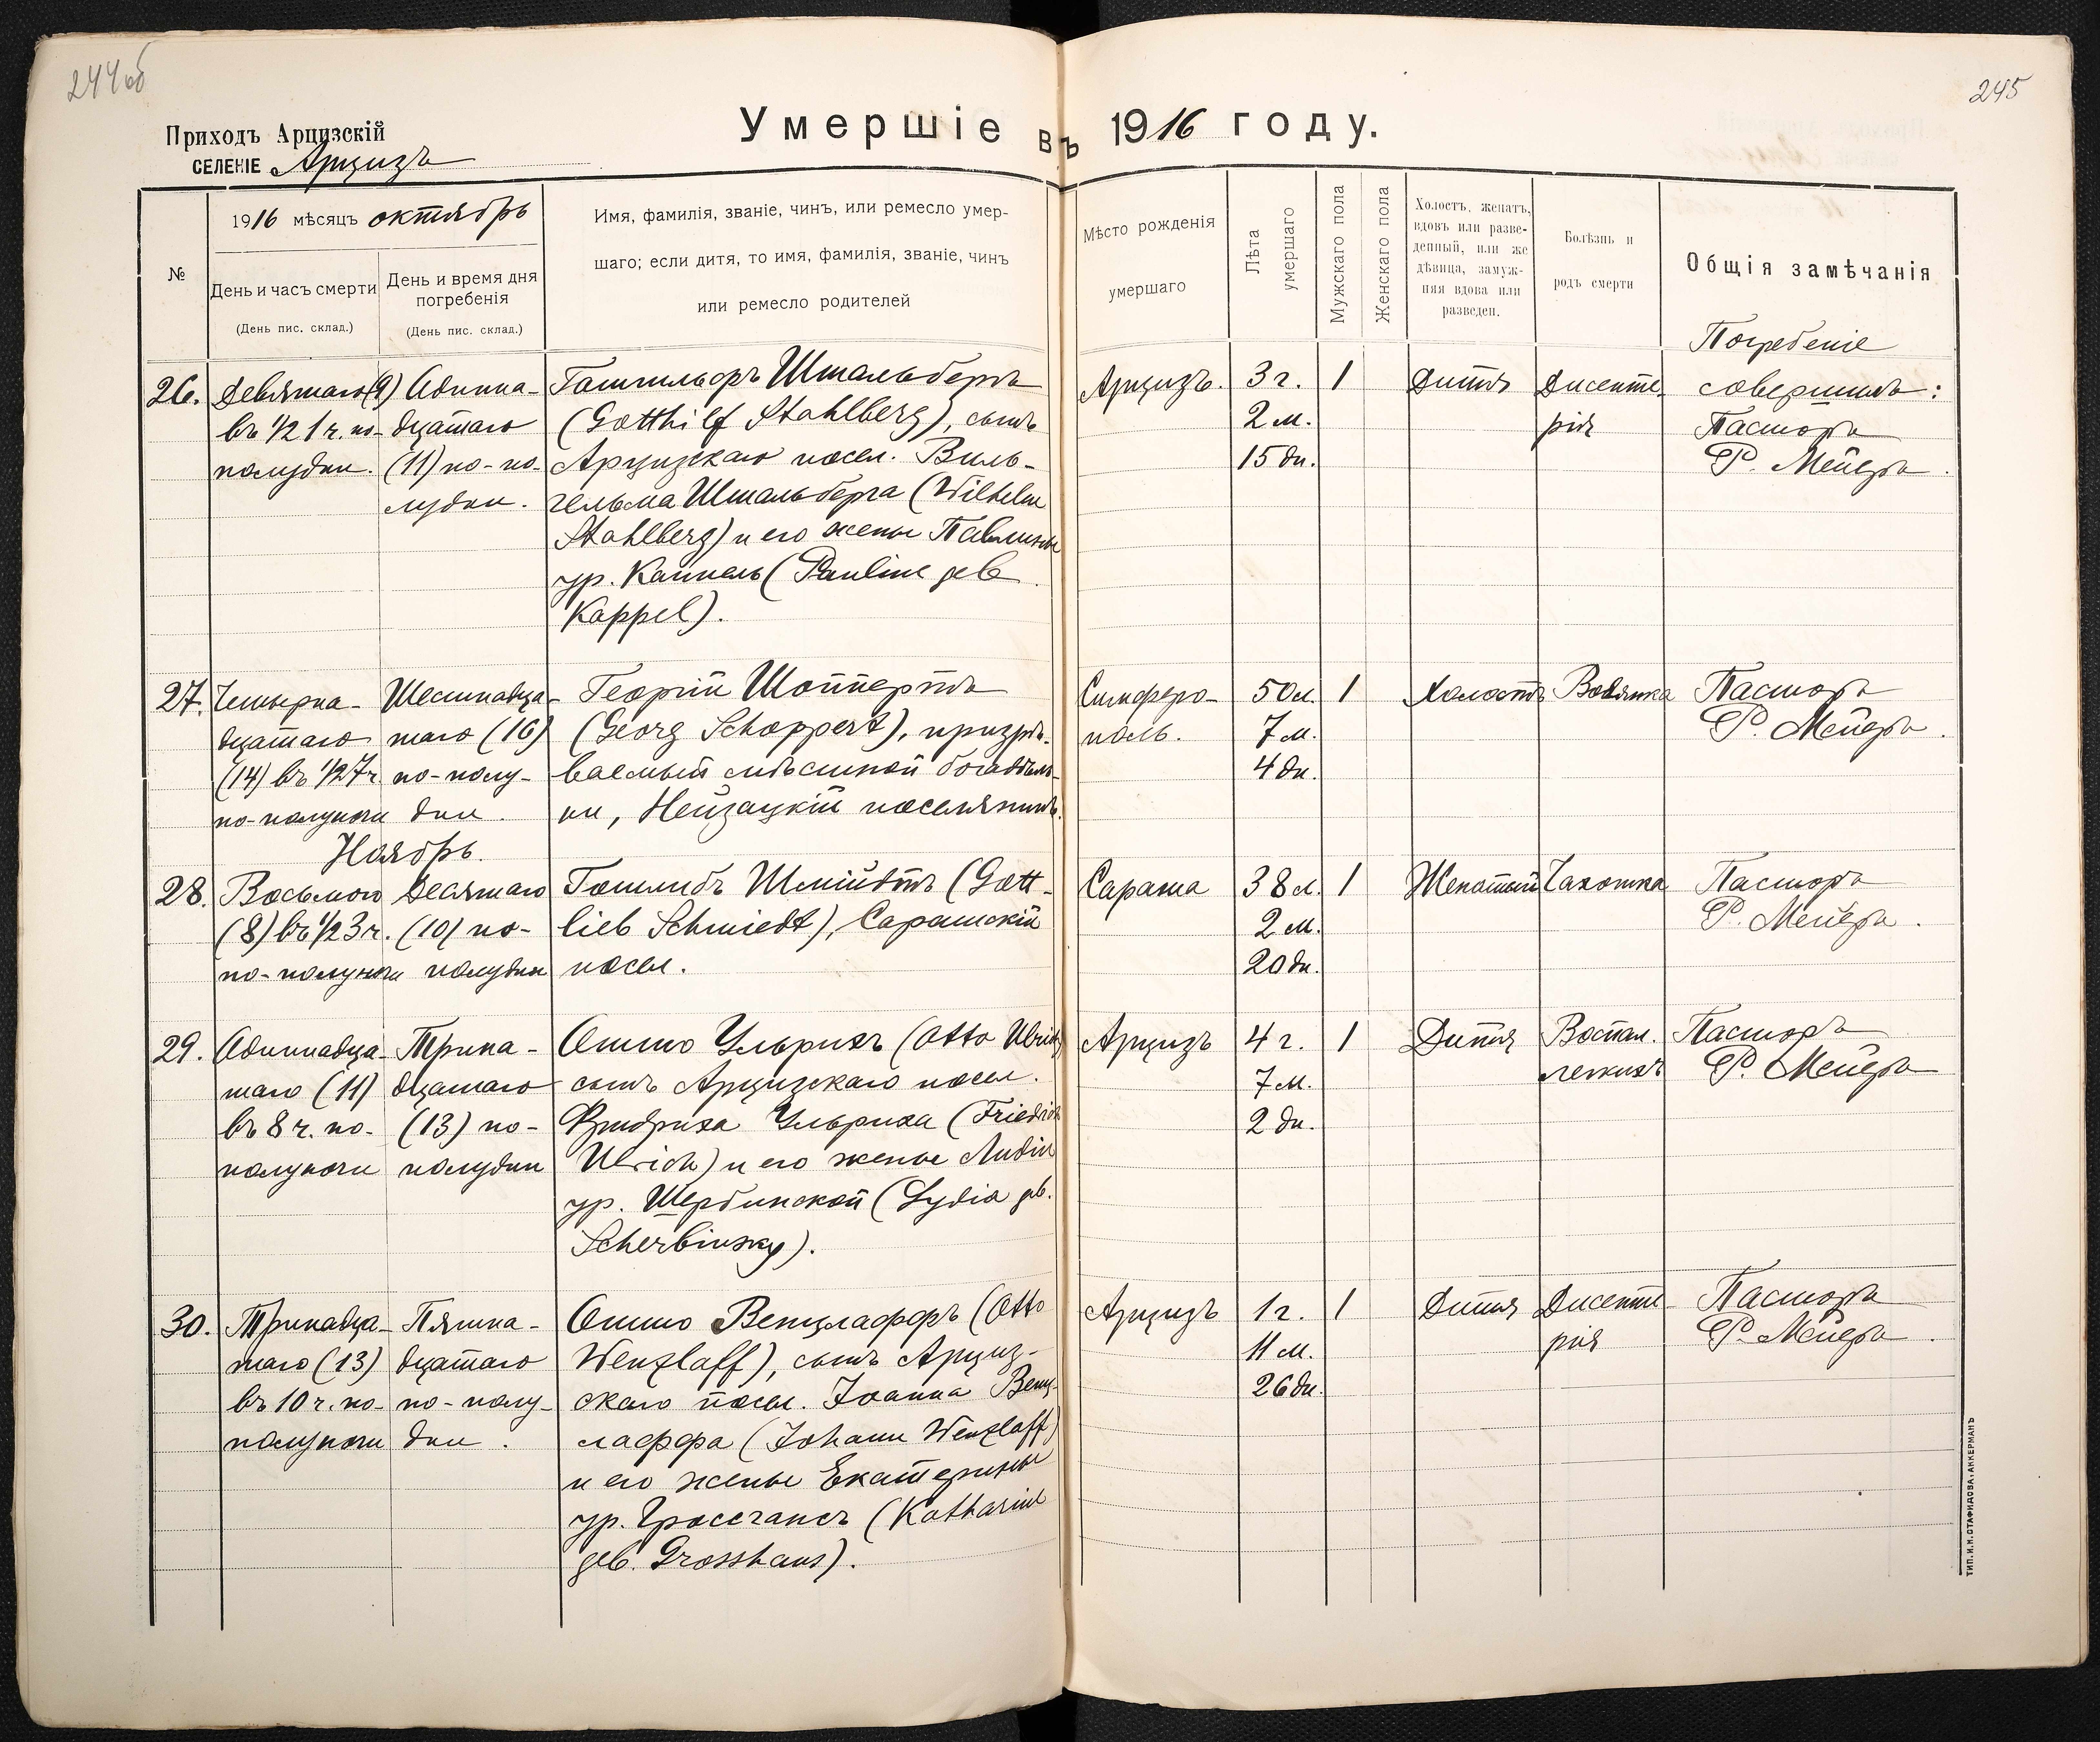 244об
245
Приходъ Арцизскій
СЕЛЕНІЕ Арцизъ
Умершіе въ 1916 году.
№
1916 мѣсяцъ октябрь
День и часъ смерти
(День пис. склад.)
День и время дня
погребенія
(День пис. склад.)
Имя, фамилія, званіе, чинъ, или ремесло умер-
шаго; если дитя, то имя, фамилія, званіе, чинъ
или ремесло родителей
Мѣсто рожденія
умершаго
Лѣта
умершаго
Мужскаго пола
Женскаго пола
Холостъ, женатъ,
вдовъ или разве-
денный, или же
дѣвица, замуж-
няя вдова или
разведен.
Болѣзнь и
родъ смерти
Общія замѣчанія
26.
Девятаго (9)
въ ½ 1 ч. по-
полудни.
Одинна-
дцатаго
(11) по-по-
лудни.
Готгильфъ Штальбергъ
(Gotthilf Stahlberg), сынъ
Арцизскаго посел. Виль-
гельма Штальберга (Wilhelm
Stahlberg) и его жены Павлины
ур. Каппель (Pauline geb.
Kappel).
Арцизъ.
3 г.
2 м.
15 дн.
1
Дитя
Дисенте-
рія
Погребеніе
совершилъ:
Пасторъ
Р. Мейеръ.
27.
Четырна-
дцатаго
(14) въ ½ 7 ч.
по-полуночи
Шестнадца-
таго (16)
по-полу-
дни.
Георгій Шоппертъ
(Georg Schoppert), призрѣ-
ваемый мѣстной богадѣль-
ни, Нейзацкій поселянинъ.
Симферо-
поль.
50 л.
7 м.
4 дн.
1
Холостъ
Водянка
Пасторъ
Р. Мейеръ.
Ноябрь.
28.
Восьмого
(8) въ ½ 3 ч.
по-полуночи
Десятаго
(10) по-
полудни
Готлибъ Шмійдтъ (Gott-
lieb Schmiedt), Саратскій
посел.
Сарата
38 л.
2 м.
20 дн.
1
Женатый
Чахотка
Пасторъ
Р. Мейеръ.
29.
Одиннадца-
таго (11)
въ 8 ч. по-
полуночи
Трина-
дцатаго
(13) по-
полудни
Отто Ульрихъ (Otto Ulrich)
сынъ Арцизскаго посел.
Фридриха Ульриха (Friedrich
Ulrich) и его жены Лидіи
ур. Щербинской (Lydia geb.
Scherbinsky).
Арцизъ
4 г.
7 м.
2 дн.
1
Дитя
Воспал.
легкихъ
Пасторъ
Р. Мейеръ
30.
Тринадца-
таго (13)
въ 10 ч. по-
полуночи
Пятна-
дцатаго
по-полу-
дни.
Отто Венцлаффъ (Otto
Wenzlaff), сынъ Арциз-
скаго посел. Іоанна Венц-
лаффа (Johann Wenzlaff)
и его жены Екатерины
ур. Гроссгансъ (Katharine
geb. Grosshans).
Арцизъ
1 г.
11 м.
26 дн.
1
Дитя
Дисенте-
рія
Пасторъ
Р. Мейеръ.
ТИП. И. Н. СТАФИДОВА, АККЕРМАНЪ